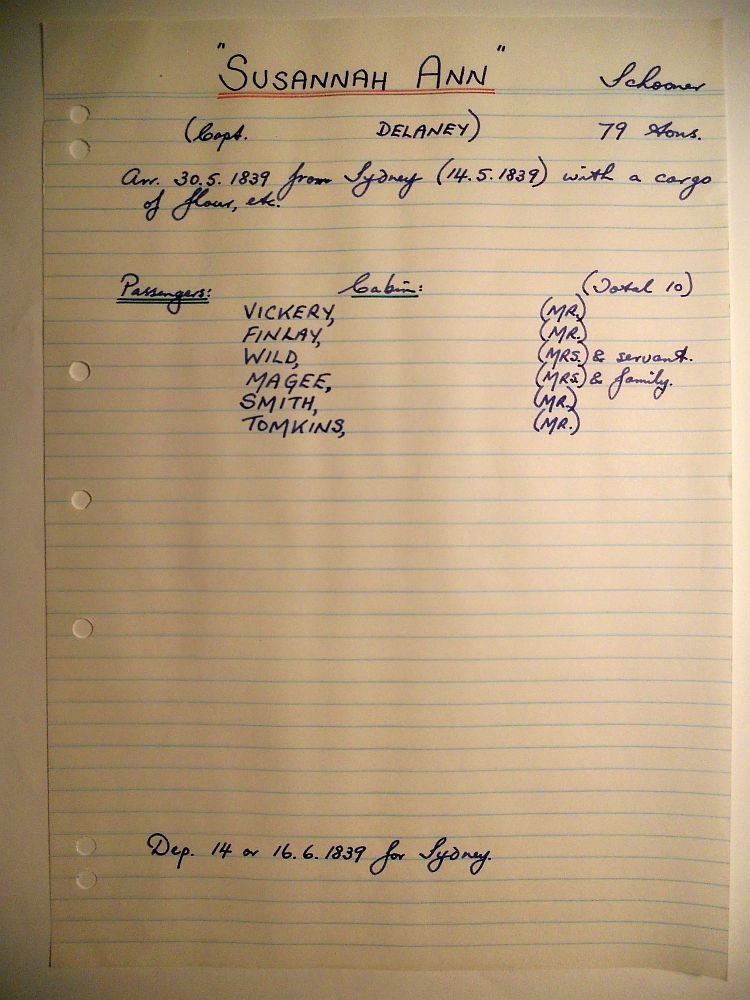 "SUSANNAH ANN" Schooner
(Capt. DELANEY) 79 tons.
Arr. 30.5.1839 from Sydney (14.5.1839) with a cargo
of flour, etc.
Passengers: Cabin: (Total 10)
VICKERY, (MR.)
FINLAY, (MR.)
WILD, (MRS.) & servant.
MAGEE, (MRS.) & family.
SMITH, (MR.)
TOMKINS, (MR.)
Dep. 14 or 16.6.1839 for Sydney.